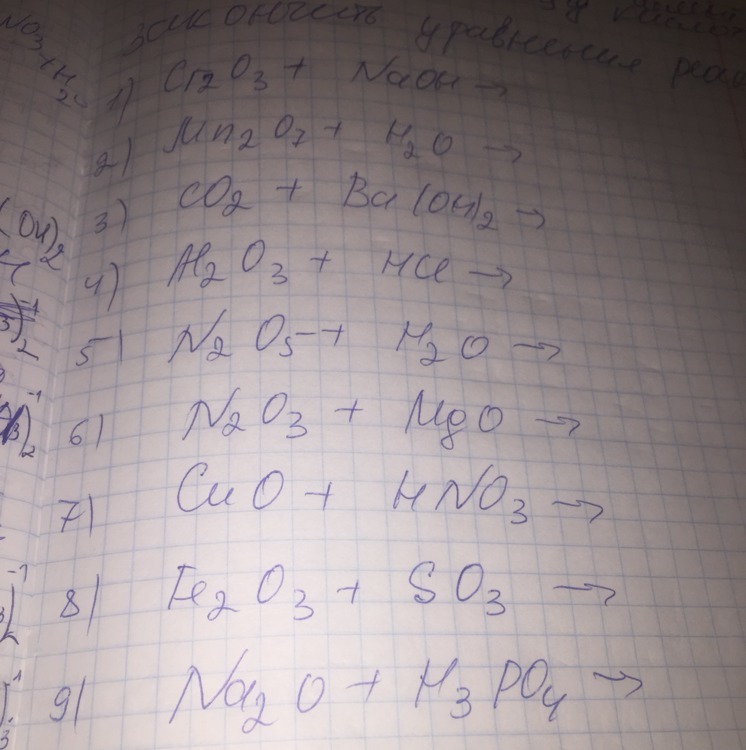 закончить уравнения
1) Cr2O3 + NaOH →
2) Mn2O7 + H2O →
3) CO2 + Ba(OH)2 →
4) Al2O3 + HCl →
5) N2O5 + H2O →
6) N2O3 + MgO →
7) CuO + HNO3 →
8) Fe2O3 + SO3 →
9) Na2O + H3PO4 →
(OH)2